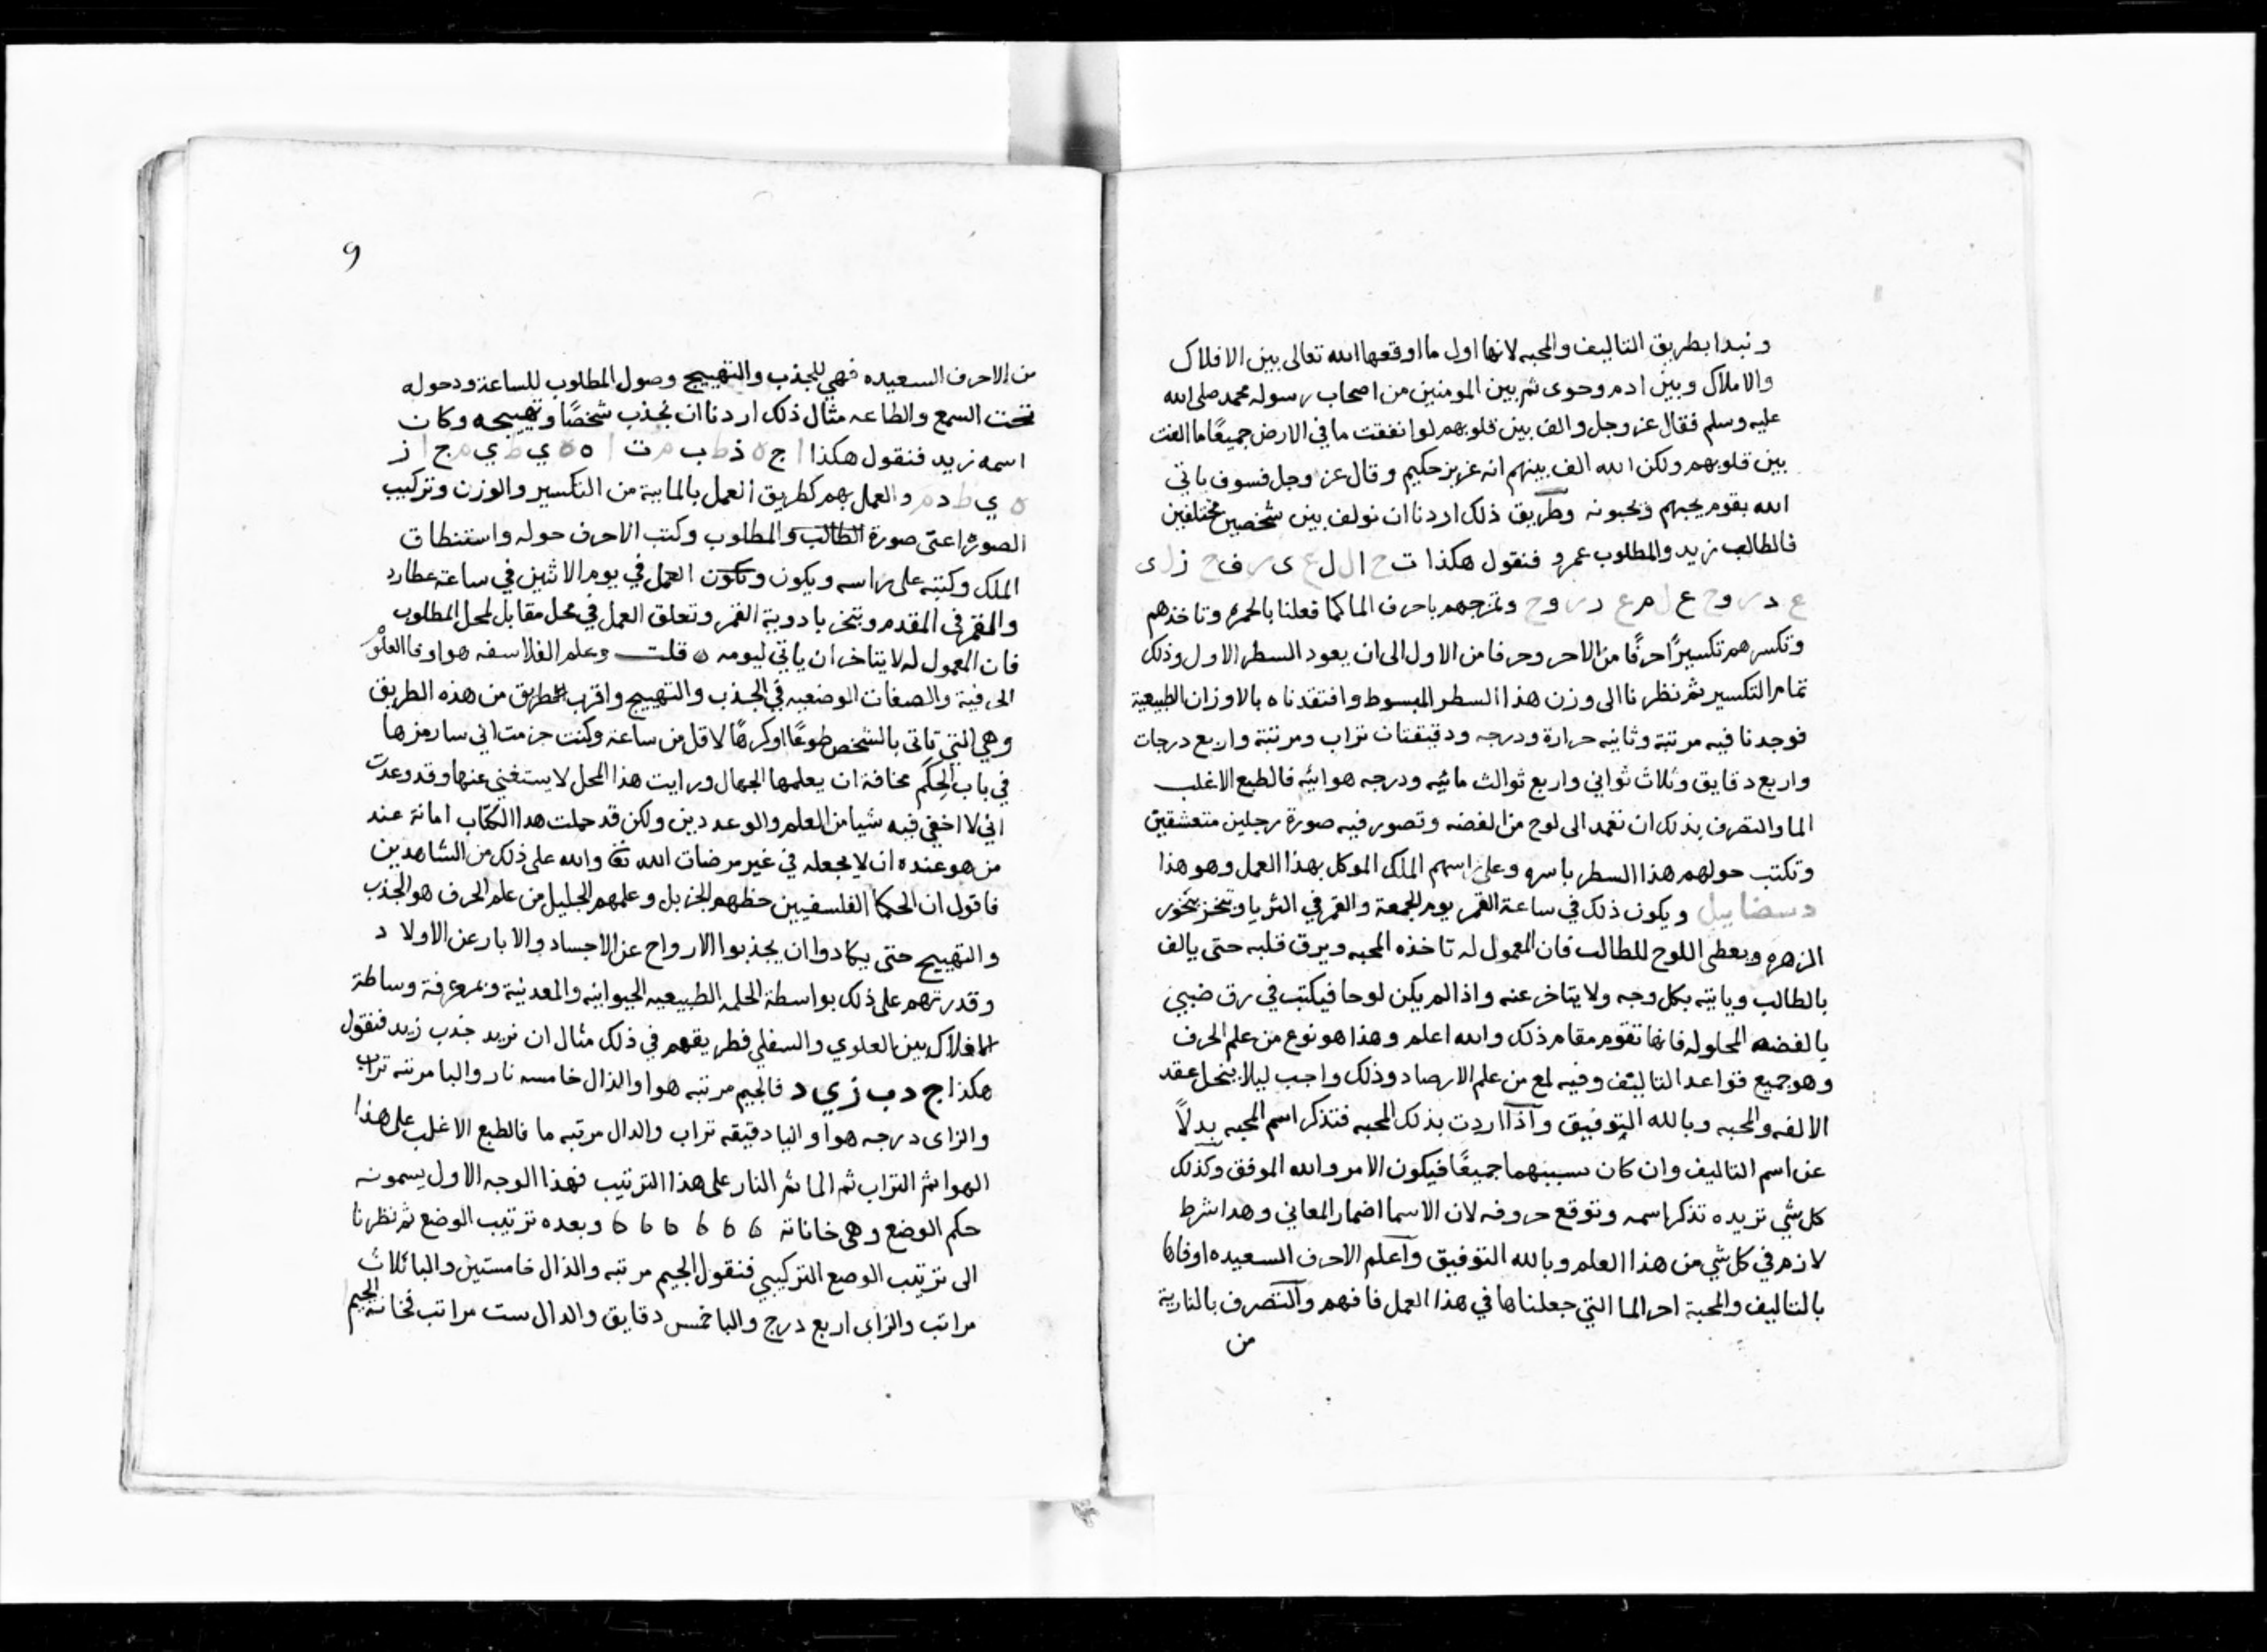 ونبدا بطريق التاليف والمحبه لانها اول ما اوقعها الله تعالى بين الافلاك
والاملاك وبين ادم وحوى ثم بين المومنين من اصحاب رسوله محمد صلى الله
عليه وسلم فقال عز وجل والف بين قلوبهم لو انفقت ما في الارض جميعًا ما الفت
بين قلوبهم ولكن الله الف بينهم انه عزيز حكيم وقال عز وجل فسوف ياتي
الله بقوم يحبهم ويحبونه وطريق ذلك اردنا ان نولف بين شخصين مختلفين
فالطالب زيد والمطلوب عمرو فنقول هكذا ت ح ا ل ل ع ى ر ف ح ز ل ى
ع د ر و ح ع ل م ع د ر و ح وتمزجهم باحرف الما كما فعلنا بالحمره وتاخذهم
وتكسرهم تكسيرًا حرفًا من الاخر وحرفا من الاول الى ان يعود السطر الاول وذلك
تمام التكسير ثم نظرنا الى وزن هذا السطر المبسوط وافتقدناه بالاوزان الطبيعية
فوجدنا فيه مرتبة وثانيه حرارة ودرجه ودقيقتان تراب ومرتبة واربع درجات
واربع دقايق وثلاث ثواني واربع ثوالث مائيه ودرجه هوائيه فالطبع الاغلب
الما والتصرف بذلك ان تعمد الى لوح من لفضه وتصور فيه صورة رجلين متعشقين
وتكتب حولهم هذا السطر باسره وعلى راسهم الملك الموكل بهذا العمل وهو هذا
دسضاييل ويكون ذلك في ساعة القمر يوم الجمعة والقمر في الثريا وتبخر بخور
الزهره ويعطى اللوح للطالب فان المعمول له تاخذه المحبه ويرق قلبه حتى يالف
بالطالب وياتيه بكل وجه ولا يتاخر عنه واذا لم يكن لوحا فيكتب في رق ضبي
بالفضه المحلوله فانها تقوم مقام ذلك والله اعلم وهذا هو نوع من علم الحرف
وهو جميع قواعد التاليف وفيه لمع من علم الارصاد وذلك واجب ليلا ينحل عقد
الالفه والمحبه وبالله التوفيق واذا اردت بذلك المحبه فتذكر اسم المحبه بدلاً
عن اسم التاليف وان كان سببهما جميعًا فيكون الامر والله الموفق وكذلك
كل شي تريده تذكر اسمه وتوقع حروفه لان الاسما اضمار المعاني وهدا شرط
لازم في كل شي من هذا العلم وبالله التوفيق واعلم الاحرف السعيده اوفاها
بالتاليف والمحبة احر الما التي جعلناها في هذا العمل فافهم والتصرف بالنارية
من
٩
من الاحرف السعيده فهي للجذب والتهييج وصول المطلوب للساعة ودخوله
تحت السمع والطاعه مثال ذلك اردنا ان نجذب شخصًا وتهييجه وكان
اسمه زيد فنقول هكذا ا ج ه ذ ط ب م ت ا ه ه ي ط ي م ج ا ز
ه ي ط د م والعمل بهم كطريق العمل بالمايية من التكسير والوزن وتركيب
الصوره اعنى صورة الطالب والمطلوب وكتب الاحرف حوله واستنطاق
الملك وكتبه على راسه ويكون ويكون العمل في يوم الاثنين في ساعة عطارد
والقمر في المقدم وتبخر بادوية القمر وتعلق العمل في محل مقابل لمحل المطلوب
فان المعمول له لا يتاخر ان ياتي ليومه ه قلت وعلم الفلاسفه هو اوفا العلوم
الحرفية والصفات الوضعيه في الجذب والتهييج واقرب للطريق من هذه الطريق
وهي التي تاتى بالشخص طوعًا اوكرهًا لاقل من ساعة وكنت جزمت اني سارمزها
في باب الحِكَم مخافة ان يعلمها الجهال ورايت هذا المحل لا يستغني عنها وقد وعدت
اني لا اخفي فيه شيا من العلم والوعد دين ولكن قد حملت هدا الكتاب امانة عند
من هو عنده ان لا يجعله في غير مرضات الله تعا والله على ذلك من الشاهدين
فاقول ان الحكما الفلسفيين حظهم الجزيل وعلمهم الجليل من علم الحرف هو الجذب
والتهييج حتى يكادوا ان يجذبوا الارواح عن الاجساد والابار عن الاولاد
وقدرتهم على ذلك بواسطة الحلمه الطبيعيه الحيوانيه والمعدنية وبمعرفة وساطة
الافلاك بين العلوي والسفلي فطريقهم في ذلك مثال ان نريد جذب زيد فنقول
هكذا ج د ب ز ي د فالجيم مرتبه هوا والذال خامسه نار والبا مرتبه تراب
والزاى درجه هوا واليا دقيقه تراب والدال مرتبه ما فالطبع الاغلب على هذا
الهوا ثم التراب ثم الما ثم النار على هذا الترتيب فهذا الوجه الاول يسمونه
حكم الوضع وهى خاناته ٥ ٥ ٥ ٥ ٥ ٥ وبعده ترتيب الوضع ثم نظرنا
الى ترتيب الوضع التركيبي فنقول الجيم مرتبه والذال خامستين والبا ثلاث
مراتب والزاى اربع درج واليا خمس دقايق والدال ست مراتب فخانة الجيم